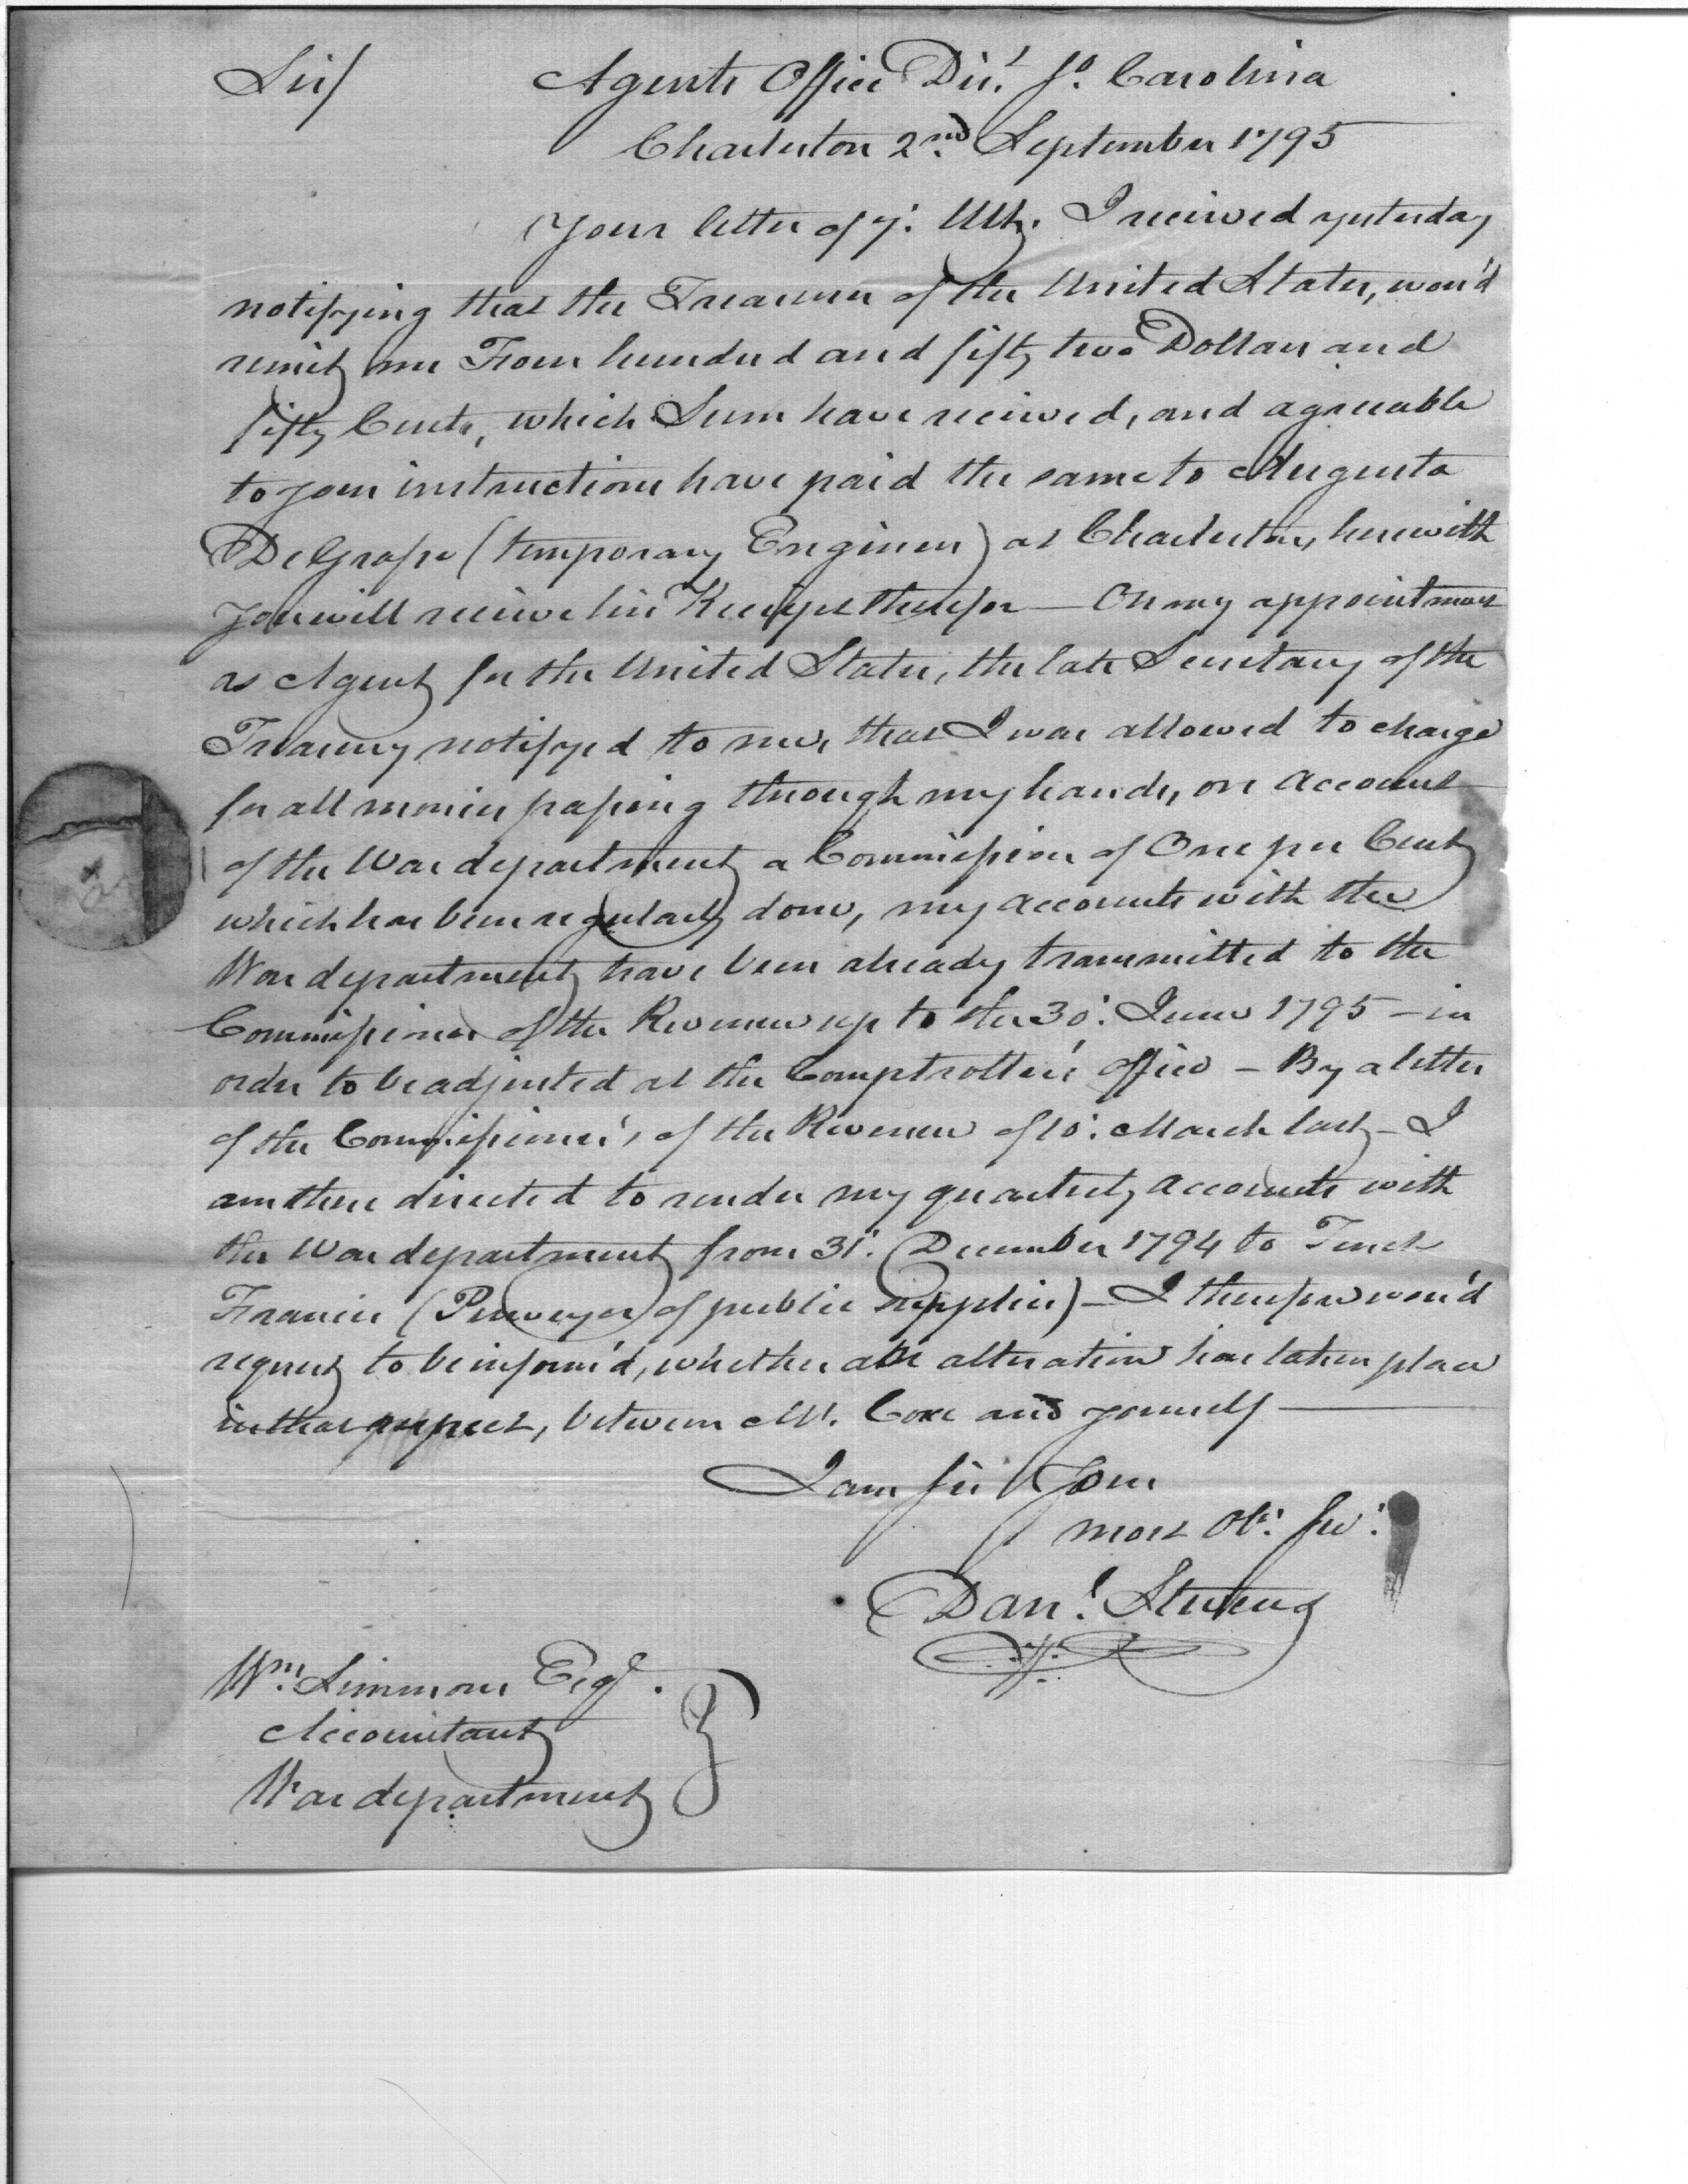 Sir/ Agents Office Dis.t So. Carolina
Charleston 2nd September 1795
Your letter of 7. Ult. I received yesterday
notifying that the Treasurer of the United States, wou'd
remit me Four hundred and fifty two Dollars and
fifty Cents, which Sum have received, and agreeable
to your instructions have paid the same to Augusta
DeGrasse (temporary Engineer) at Charleston, herewith
you will receive his Receipt therefor — On my appointment
as Agent for the United States, the late Secretary of the
Treasury notifyed to me, that I was allowed to charge
for all monies passing through my hands, on account
of the War department a Commission of One per Cent
which has been regularly done, my accounts with the
War department have been already transmitted to the
Commissioner of the Revenue up to the 30. June 1795 – in
order to be adjusted at the Comptroller's office – By a letter
of the Commissioner's of the Revenue of 10. March last – I
am there directed to render my quarterly accounts with
the War department from 31. December 1794 to Tench
Francis (Purveyor of public supplies) – I therefore wou'd
request to be inform'd, whether alteration has taken place
in that respect, between Mr. Coxe and yourself —
I am Sir Your
most Ob.t Ser.t
Danl. Stevens
Wm. Simmons Esqr.
Accountant
War department